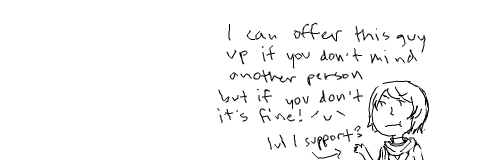 I can offer this guy
up if you don't mind
another person
but if you don't
it's fine! ^u^
lvl 1 support?